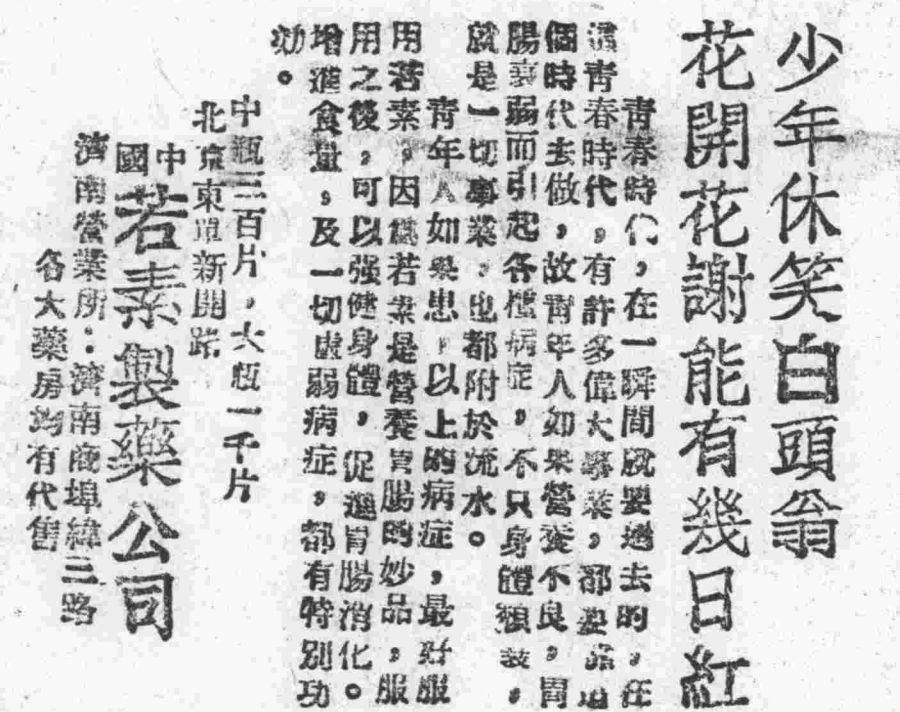 少年休笑白頭翁
花開花謝能有幾日紅
青春時代，在一瞬間就要過去的，在
這青春時代，有許多偉大事業，都要靠這
個時代去做，故青年人如果營養不良，胃
腸衰弱而引起各種病症，不只身體頹衰，
就是一切事業，也都附於流水。
青年人如果患了以上的病症，最好服
用若素，因為若素是營養胃腸的妙品，服
用之後，可以强健身體，促進胃腸消化。
增進食量，及一切虛弱病症，都有特別功
効。
中瓶三百片，大瓶一千片
北京東單新開路
中國若素製藥公司
濟南營業所：濟南商埠緯三路
各大藥房均有代售